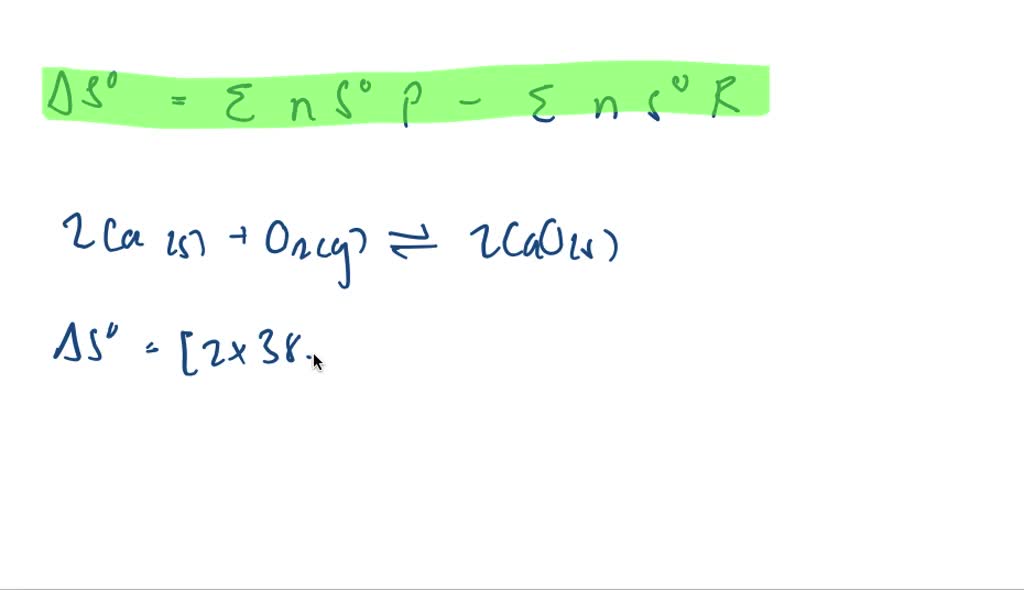 ΔS⁰ = Σ n S⁰ P - Σ n S⁰ R
2Ca (s) + O₂(g) ⇌ 2CaO(s)
ΔS⁰ = [2×38.